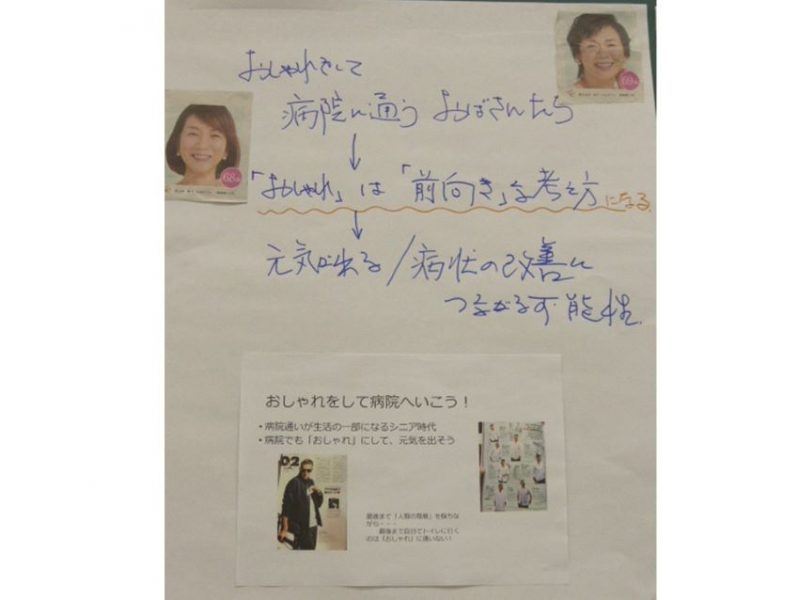 おしゃれをして
病院に通う おばさんたち
↓
「おしゃれ」は「前向き」な考え方になる
↓
元気が出る/病状の改善に
つながる可能性
おしゃれをして病院へいこう!
• 病院通いが生活の一部になるシニア時代
• 病院でも「おしゃれ」にして、元気を出そう
02
最後まで「人類の尊厳」を保ちな
がら・・・
最後まで自分でトイレに行く
のは「おしゃれ」に違いない!
68歳